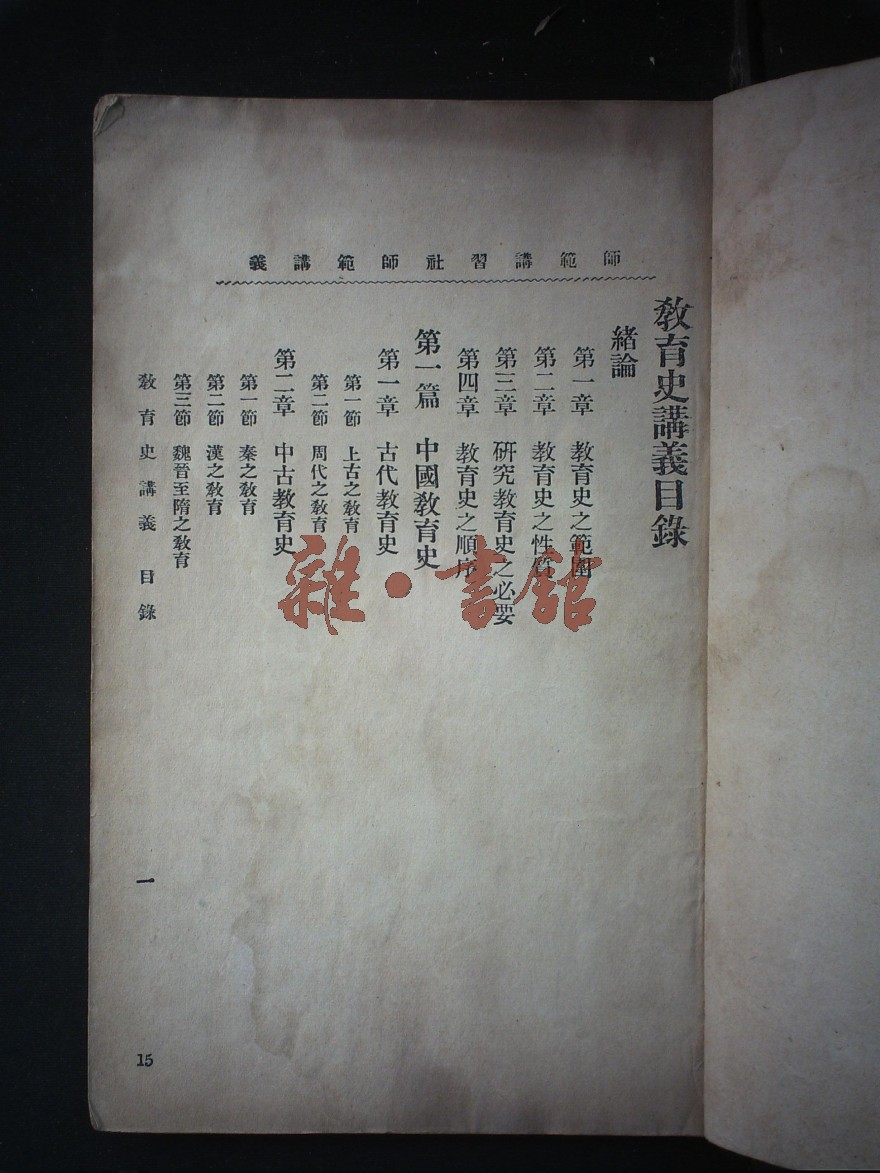 師範講習社師範講義
教育史講義目錄
緒論
第一章 教育史之範圍
第二章 教育史之性質
第三章 研究教育史之必要
第四章 教育史之順序
第一篇 中國教育史
第一章 古代教育史
第一節 上古之教育
第二節 周代之教育
第二章 中古教育史
第一節 秦之教育
第二節 漢之教育
第三節 魏晉至隋之教育
教育史講義 目錄
一
15
雜·書館